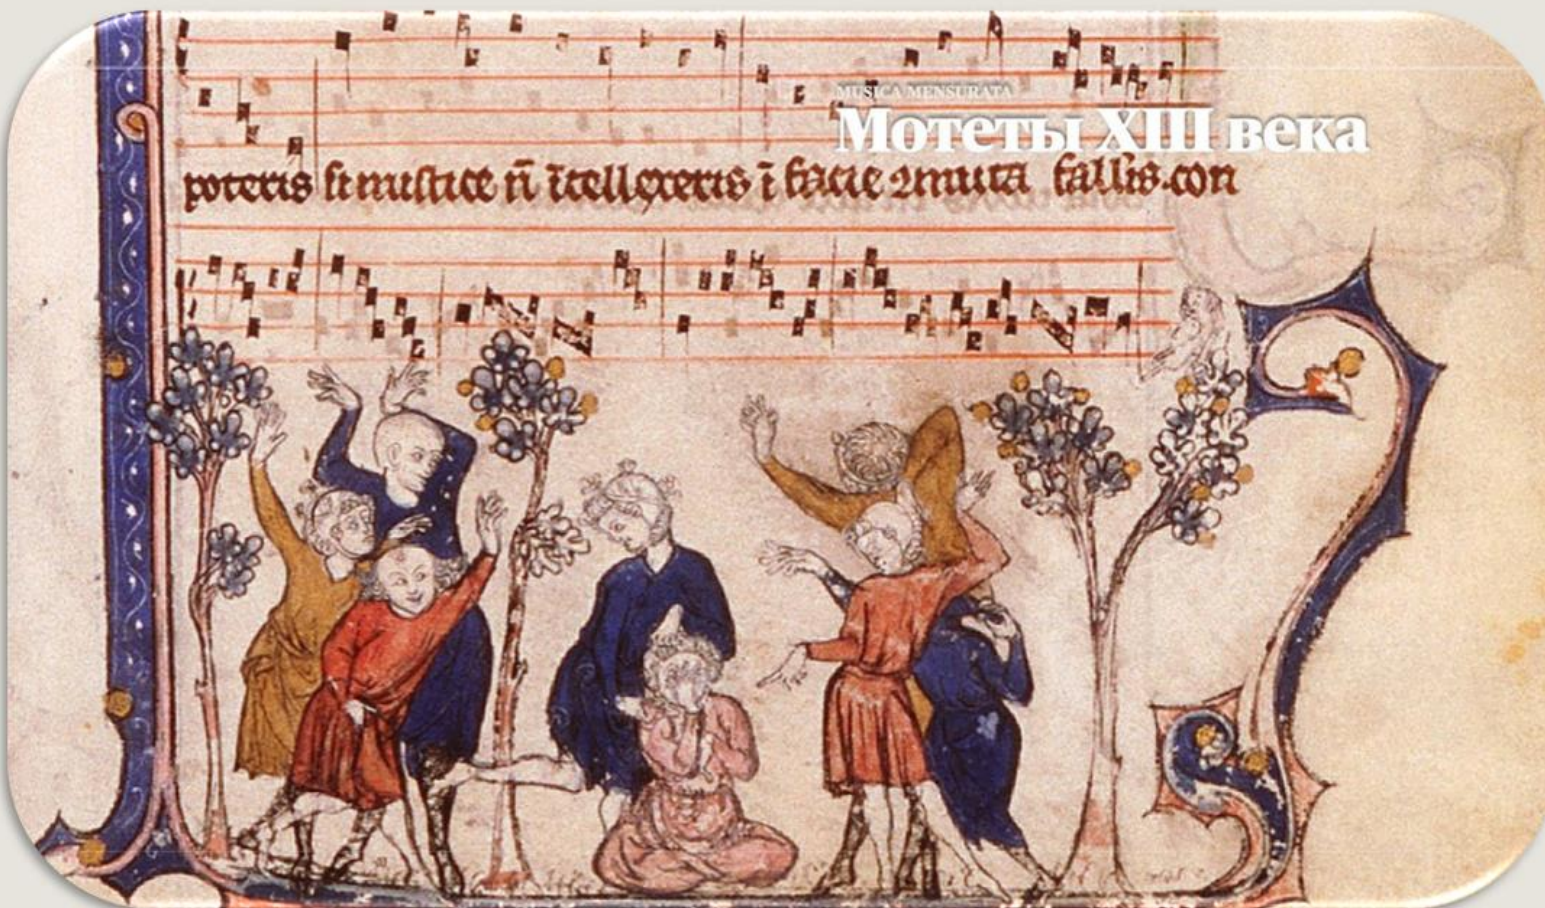 MUSICA MENSURATA
Мотеты XIII века
poteris si mistice n̄ ītellexeris ī facie 2muta fallis.con